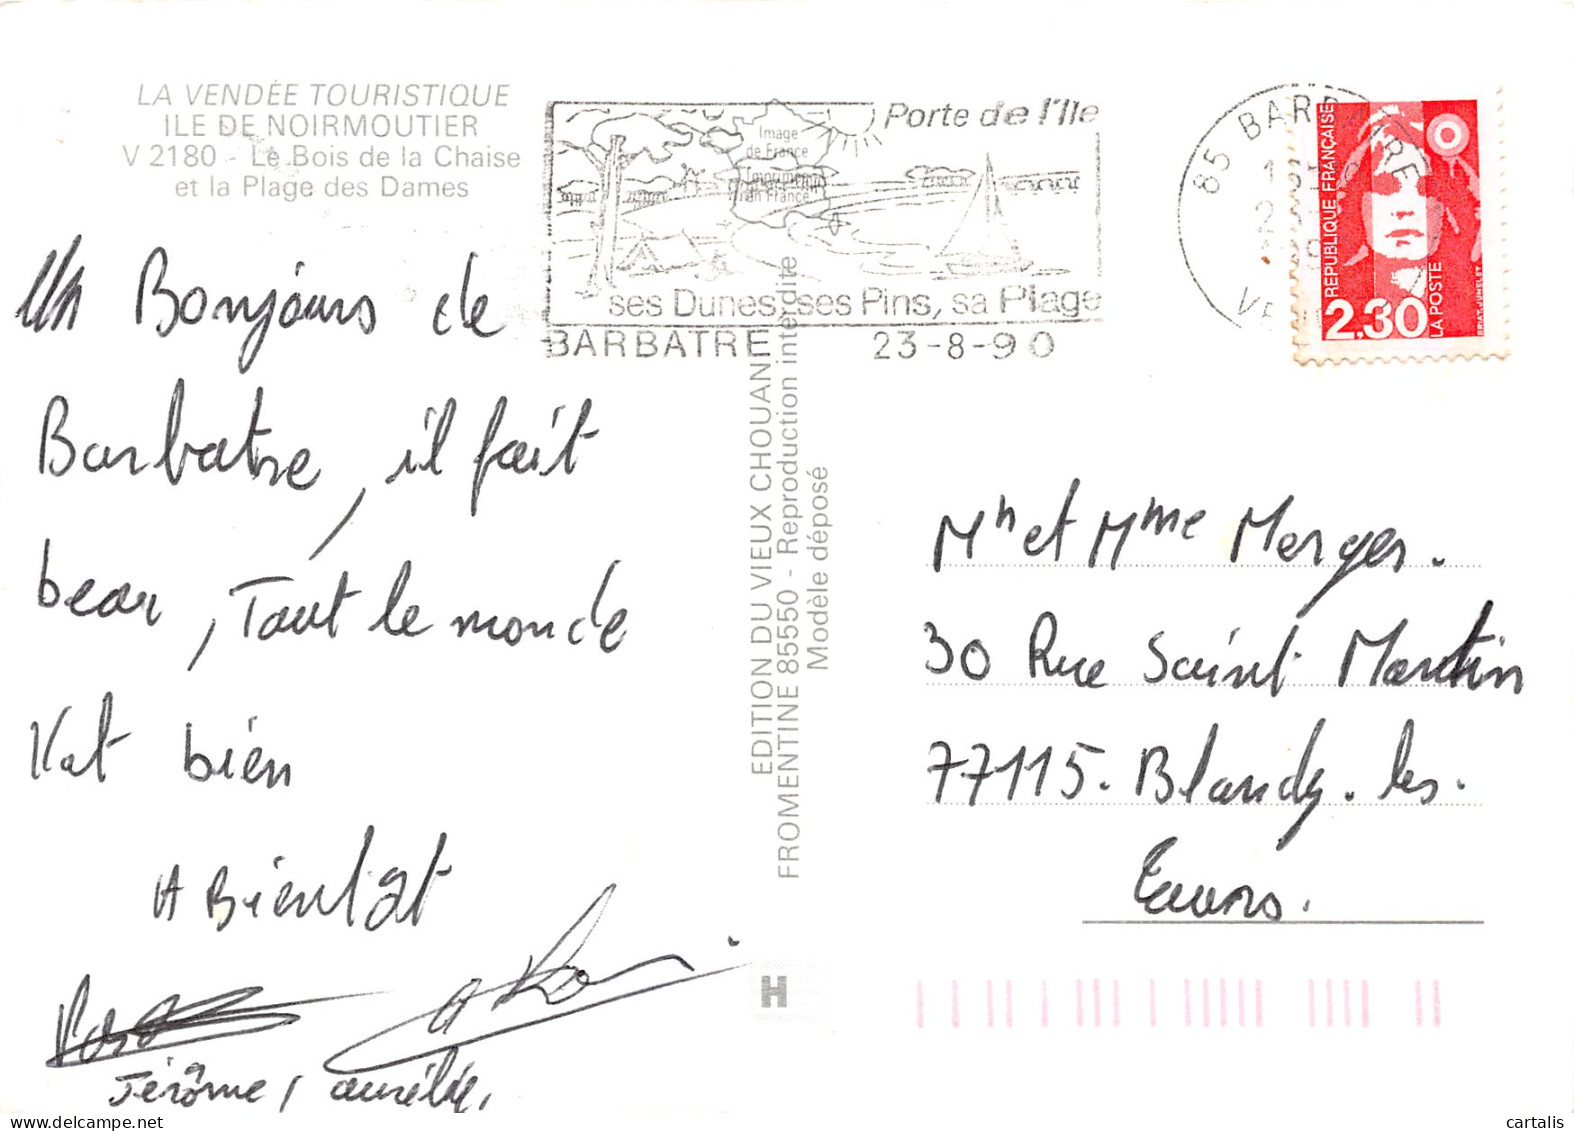 LA VENDÉE TOURISTIQUE
ILE DE NOIRMOUTIER
V 2180 - Le Bois de la Chaise
et la Plage des Dames
Porte de l'Ile
Image
de France
Imprimé
en France
ses Dunes, ses Pins, sa Plage
BARBATRE 23-8-90
85 BARBATRE
REPUBLIQUE FRANÇAISE
2,30
LA POSTE
BRIAT-JUMELET
Un Bonjours de
Barbatre, il fait
beau, Tout le monde
Vat bien
A Bientôt
Jérôme, aurélie,
EDITION DU VIEUX CHOUAN
FROMENTINE 85550 - Reproduction interdite
Modèle déposé
H
Mr et Mme Merges.
30 Rue Saint Martin
77115. Blandy. les.
Tours.
cartalis